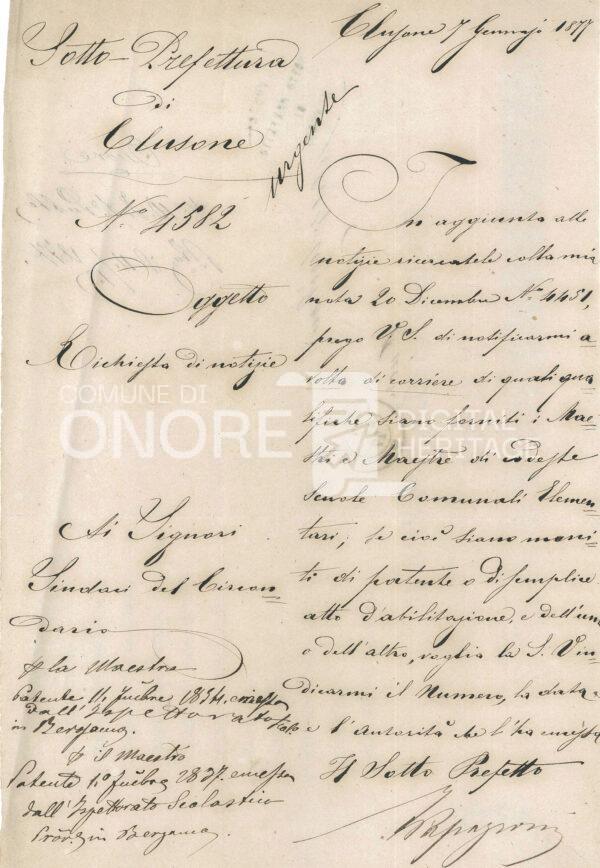 Clusone 7 Gennajo 1877
Sotto-Prefettura
di
Clusone
urgente
N.º 4582
Oggetto
Richiesta di notizie
Ai Signori
Sindaci del Circon=
dario
In aggiunta alle
notizie ricercatele colla mia
nota 20 Dicembre Nº 4451,
prego V. S. di notificarmi a
volta di corriere di quali qua=
lifiche siano forniti i Mae=
stri e Maestre di codeste
Scuole Comunali Elemen=
tari, se cioè siano muni=
ti di patente o di semplice
atto d'abilitazione, e dell'uno
o dell'altro, voglia la S. V. in=
dicarmi il Numero, la data
e l'autorità che l'ha emessa
Il Sotto Prefetto
la Maestra
Patente 1834 emessa
dall'Ispettorato
in Bergamo.
il Maestro
Patente emessa
dall'Ispettorato Scolastico
in Bergamo.
COMUNE DI
ONORE
DIGITAL
HERITAGE